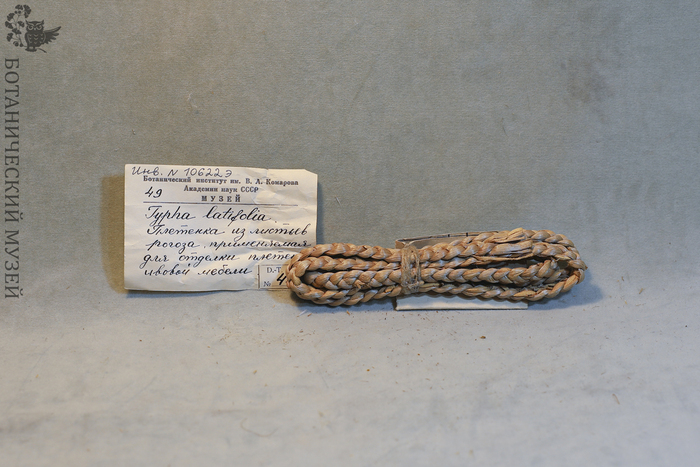 БОТАНИЧЕСКИЙ МУЗЕЙ
Инв. N 106223
Ботанический институт им. В. Л. Комарова
Академии наук СССР
49 МУЗЕЙ
Typha latifolia.
Плетенка из листьев
рогоза, применяемая
для отделки плете
ивовой мебели
D.-T.
№ 4